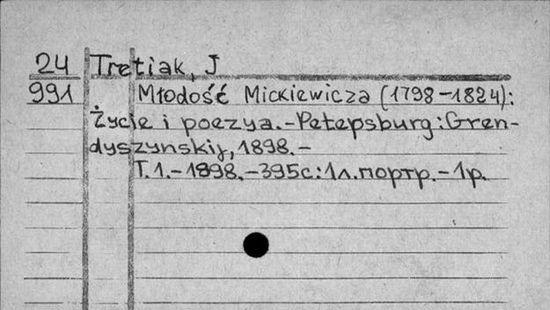 24 Tretiak, J
991 Młodość Mickiewicza (1798-1824):
Życie i poezya.-Petepsburg:Gren-
dyszynskij, 1898.-
T.1.-1898.-395с:1л.портр.-1р.